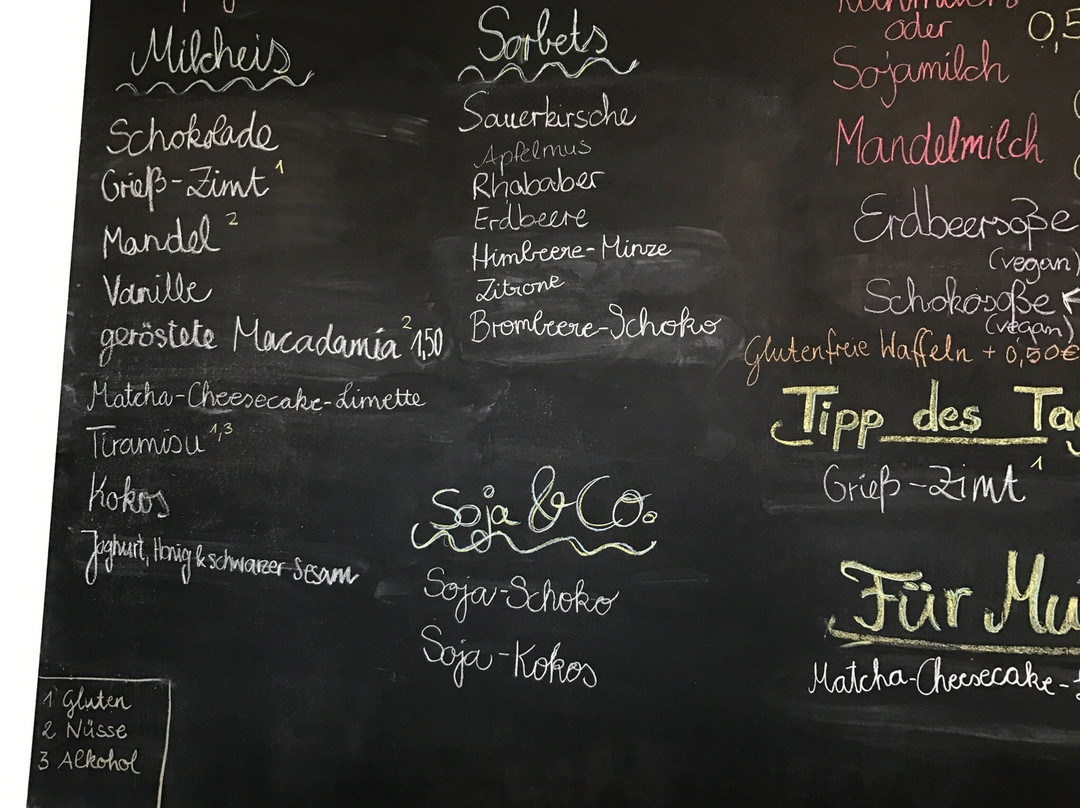 Milcheis
Schokolade
Grieß-Zimt 1
Mandel 2
Vanille
geröstete Macadamia 2 1,50
Matcha-Cheesecake-Limette
Tiramisu 1,3
Kokos
Joghurt, Honig & schwarzer Sesam
1 Gluten
2 Nüsse
3 Alkohol
Sorbets
Sauerkirsche
Apfelmus
Rhababer
Erdbeere
Himbeere-Minze
Zitrone
Brombeere-Schoko
Soja & Co.
Soja-Schoko
Soja-Kokos
oder 0,5
Sojamilch
Mandelmilch
Erdbeersoße
(vegan)
Schokosoße
(vegan)
Glutenfreie Waffeln + 0,50€
Tipp des Tag
Grieß-Zimt 1
Für Mu
Matcha-Cheesecake-